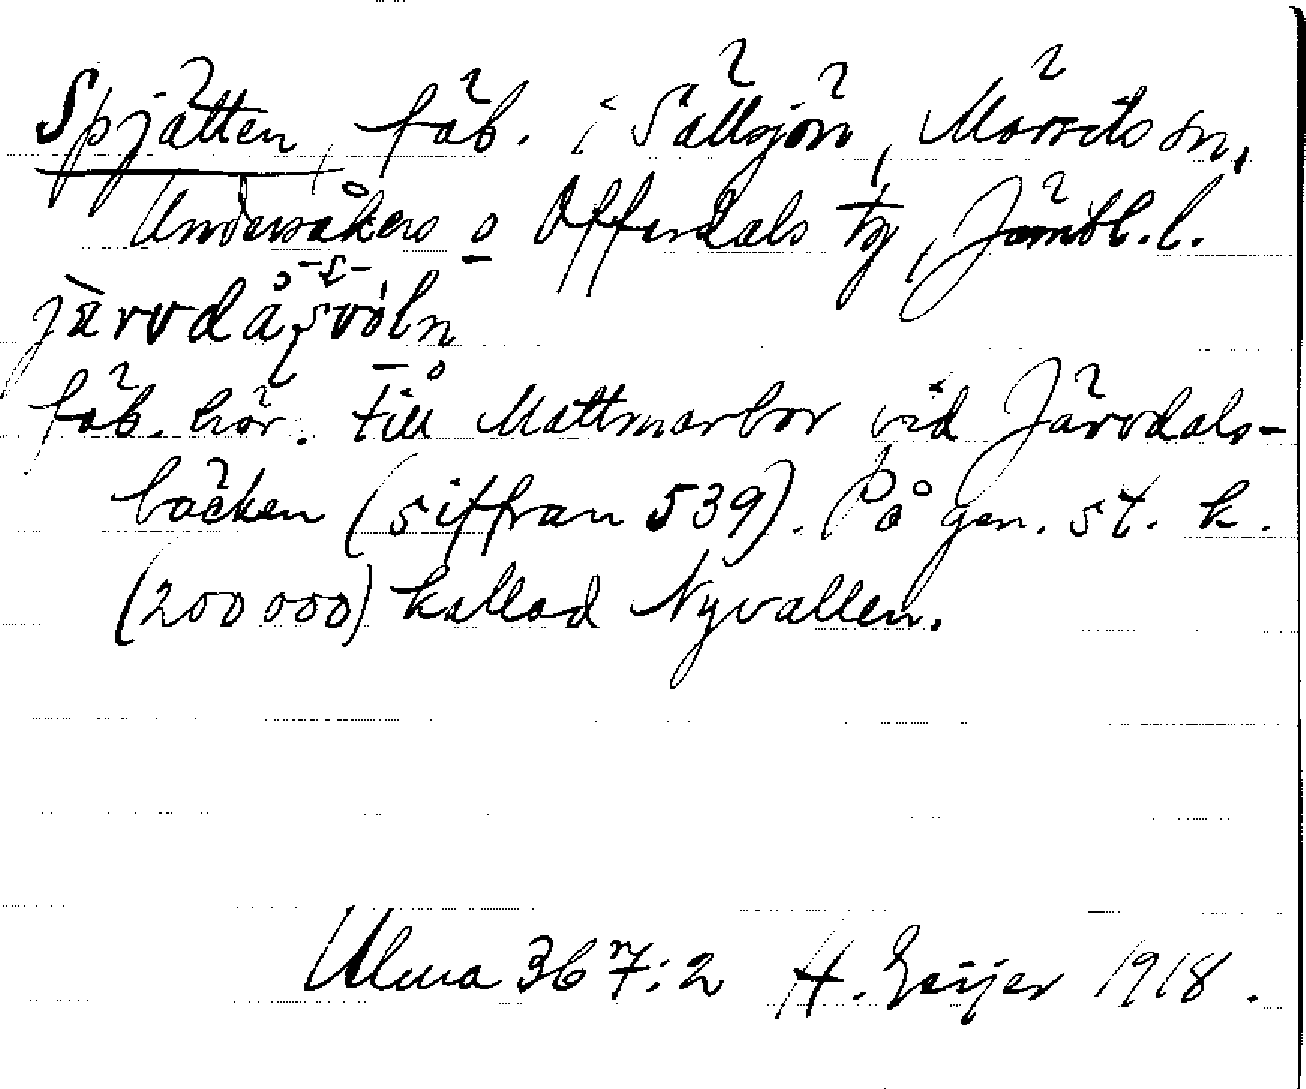 Spjätten, fäb. i Sällsjön, Mörsils sn,
Undersåkers o Offerdals tg, Jämtl. l.
fäb. hör. till Mattmarbor vid Järvdals-
bäcken (siffran 539). På gen. st. k.
(200 000) kallad Nyvallen.
Ulma 367:2 H. Geijer 1918.